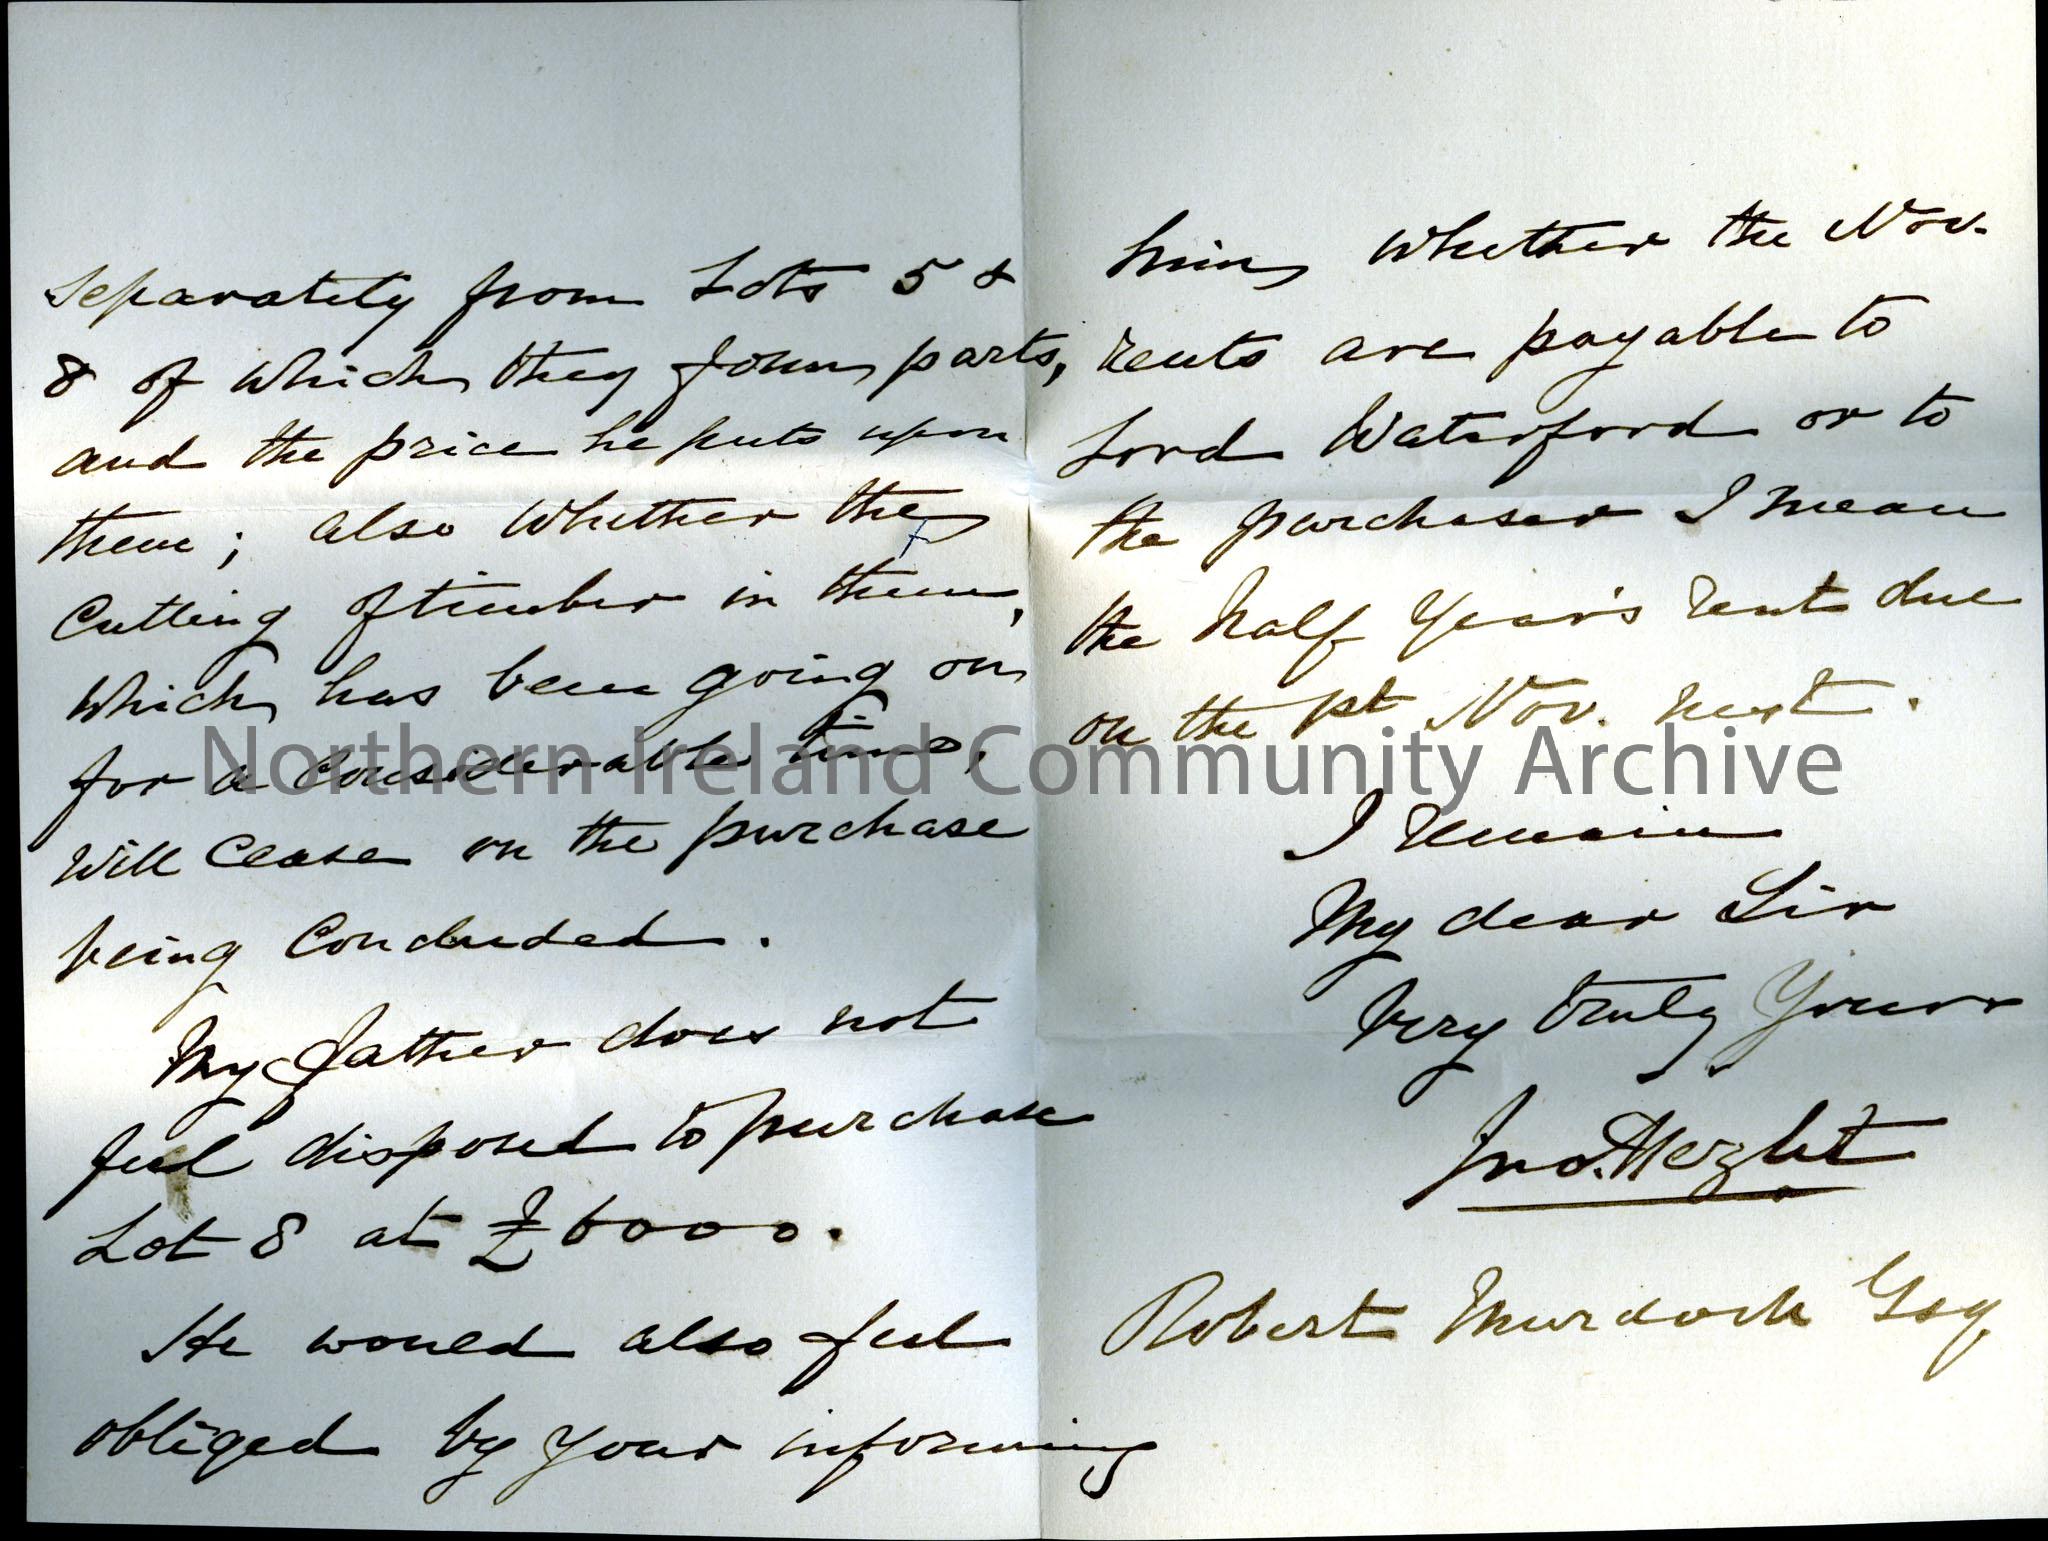 separately from Lots 5 &
8 of which they form parts,
and the price he puts upon
them; also whether the
Cutting of timber in them,
which has been going on
for a considerable time,
will cease on the purchase
being Concluded.
My father does not
feel disposed to purchase
Lot 8 at £6000.
He would also feel
obliged by your informing
him whether the Nov.
rents are payable to
Lord Waterford or to
the purchaser I mean
the half Year's rent due
on the 1st Nov. next.
I remain
My dear Sir
Very truly Yours
Jno. Hezlet
Robert Murdock Esq.
Northern Ireland Community Archive